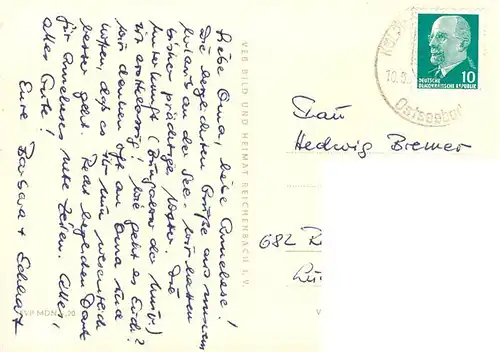 Liebe Oma, liebe Annelese!
Die herzlichsten Grüße aus unserem
Urlaub an der See. Wir hatten
bisher prächtiges Wetter. Die
Unterkunft (Bungalow der Univ.)
ist erstklassig! Wie geht es Euch?
Wir denken oft an Oma und
hoffen, daß es ihr nun wesentlich
besser geht. Recht herzlichen Dank
für Anneleses nette Zeilen. Alles,
alles Gute!
Eure Barbara +
VEB BILD UND HEIMAT REICHENBACH I. V.
EVP MDN 0,20
DEUTSCHE
DEMOKRATISCHE REPUBLIK
10
10.8.
Ostseebad
Frau
Hedwig Bremer
682
V